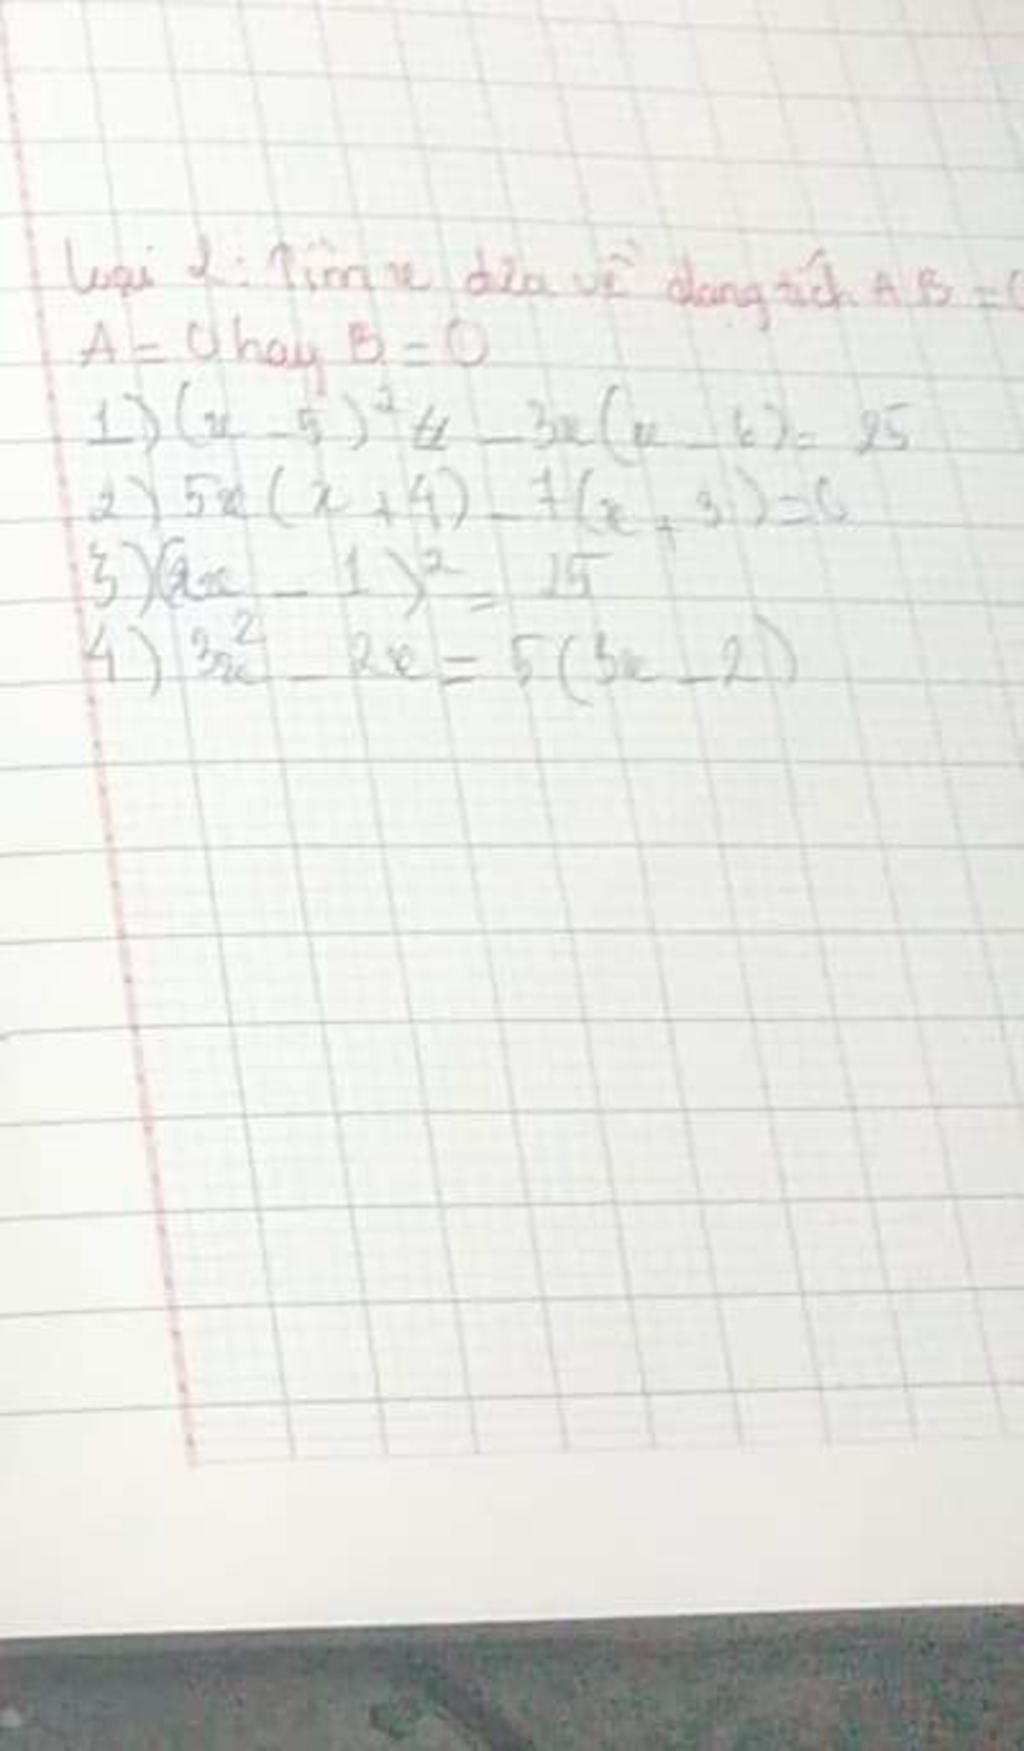 Loại 2: Tìm x đưa về dạng tích A B = 0
A = 0 hay B = 0
1) (x - 5)² - 3x(x - 6) = 25
2) 5x(x + 4) - 7(x + 3) = 6
3) (2x - 1)² = 25
4) 3x² - 2x = 5(3x - 2)